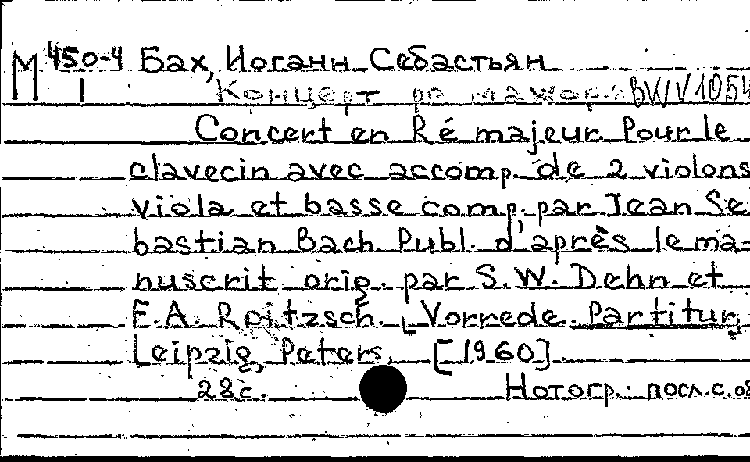 М 450-4 Бах, Иоганн Себастьян
1 Концерт ре мажор. BWV 1054
Concert en Ré majeur Pour le
clavecin avec accomp. de 2 violons
viola et basse comp. par Jean Se
bastian Bach Publ. d'après le ma-
nuscrit orig. par S.W. Dehn et
F.A. Roitzsch. [Vorrede. Partitur,
Leipzig, Peters, [1960]
28с. Нотогр.: посл.с. об